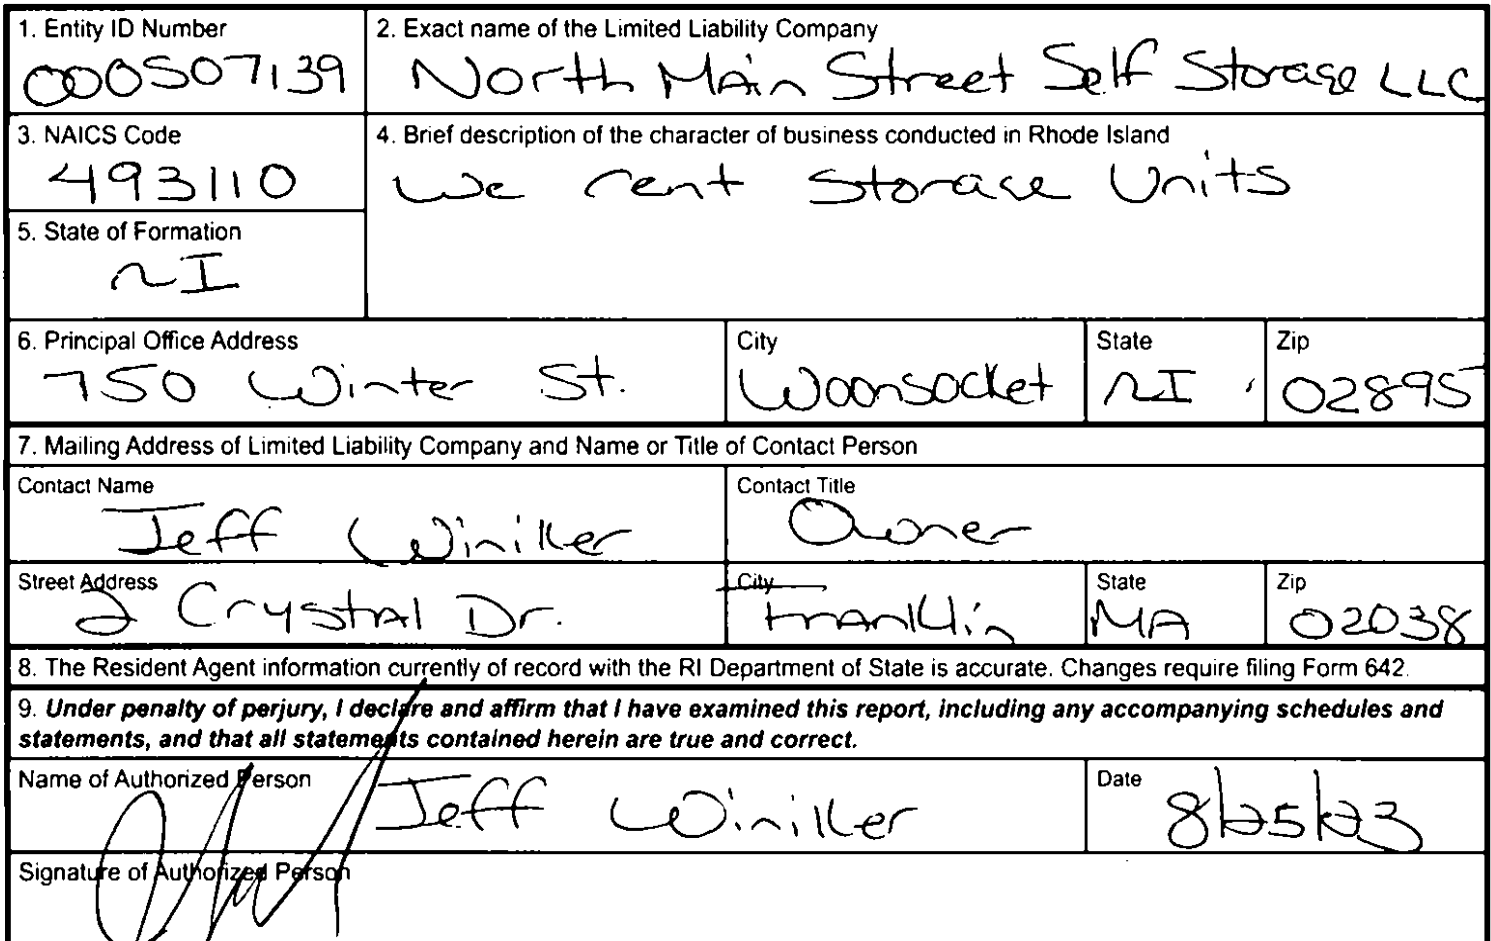 1. Entity ID Number
000507139
2. Exact name of the Limited Liability Company
North Main Street Self Storage LLC
3. NAICS Code
493110
4. Brief description of the character of business conducted in Rhode Island
We rent Storage Units
5. State of Formation
RI
6. Principal Office Address
750 Winter St.
City
Woonsocket
State
RI
Zip
02895
7. Mailing Address of Limited Liability Company and Name or Title of Contact Person
Contact Name
Jeff Winiker
Contact Title
Owner
Street Address
2 Crystal Dr.
City
Franklin
State
MA
Zip
02038
8. The Resident Agent information currently of record with the RI Department of State is accurate. Changes require filing Form 642.
9. Under penalty of perjury, I declare and affirm that I have examined this report, including any accompanying schedules and
statements, and that all statements contained herein are true and correct.
Name of Authorized Person
Jeff Winiker
Date
8/25/23
Signature of Authorized Person